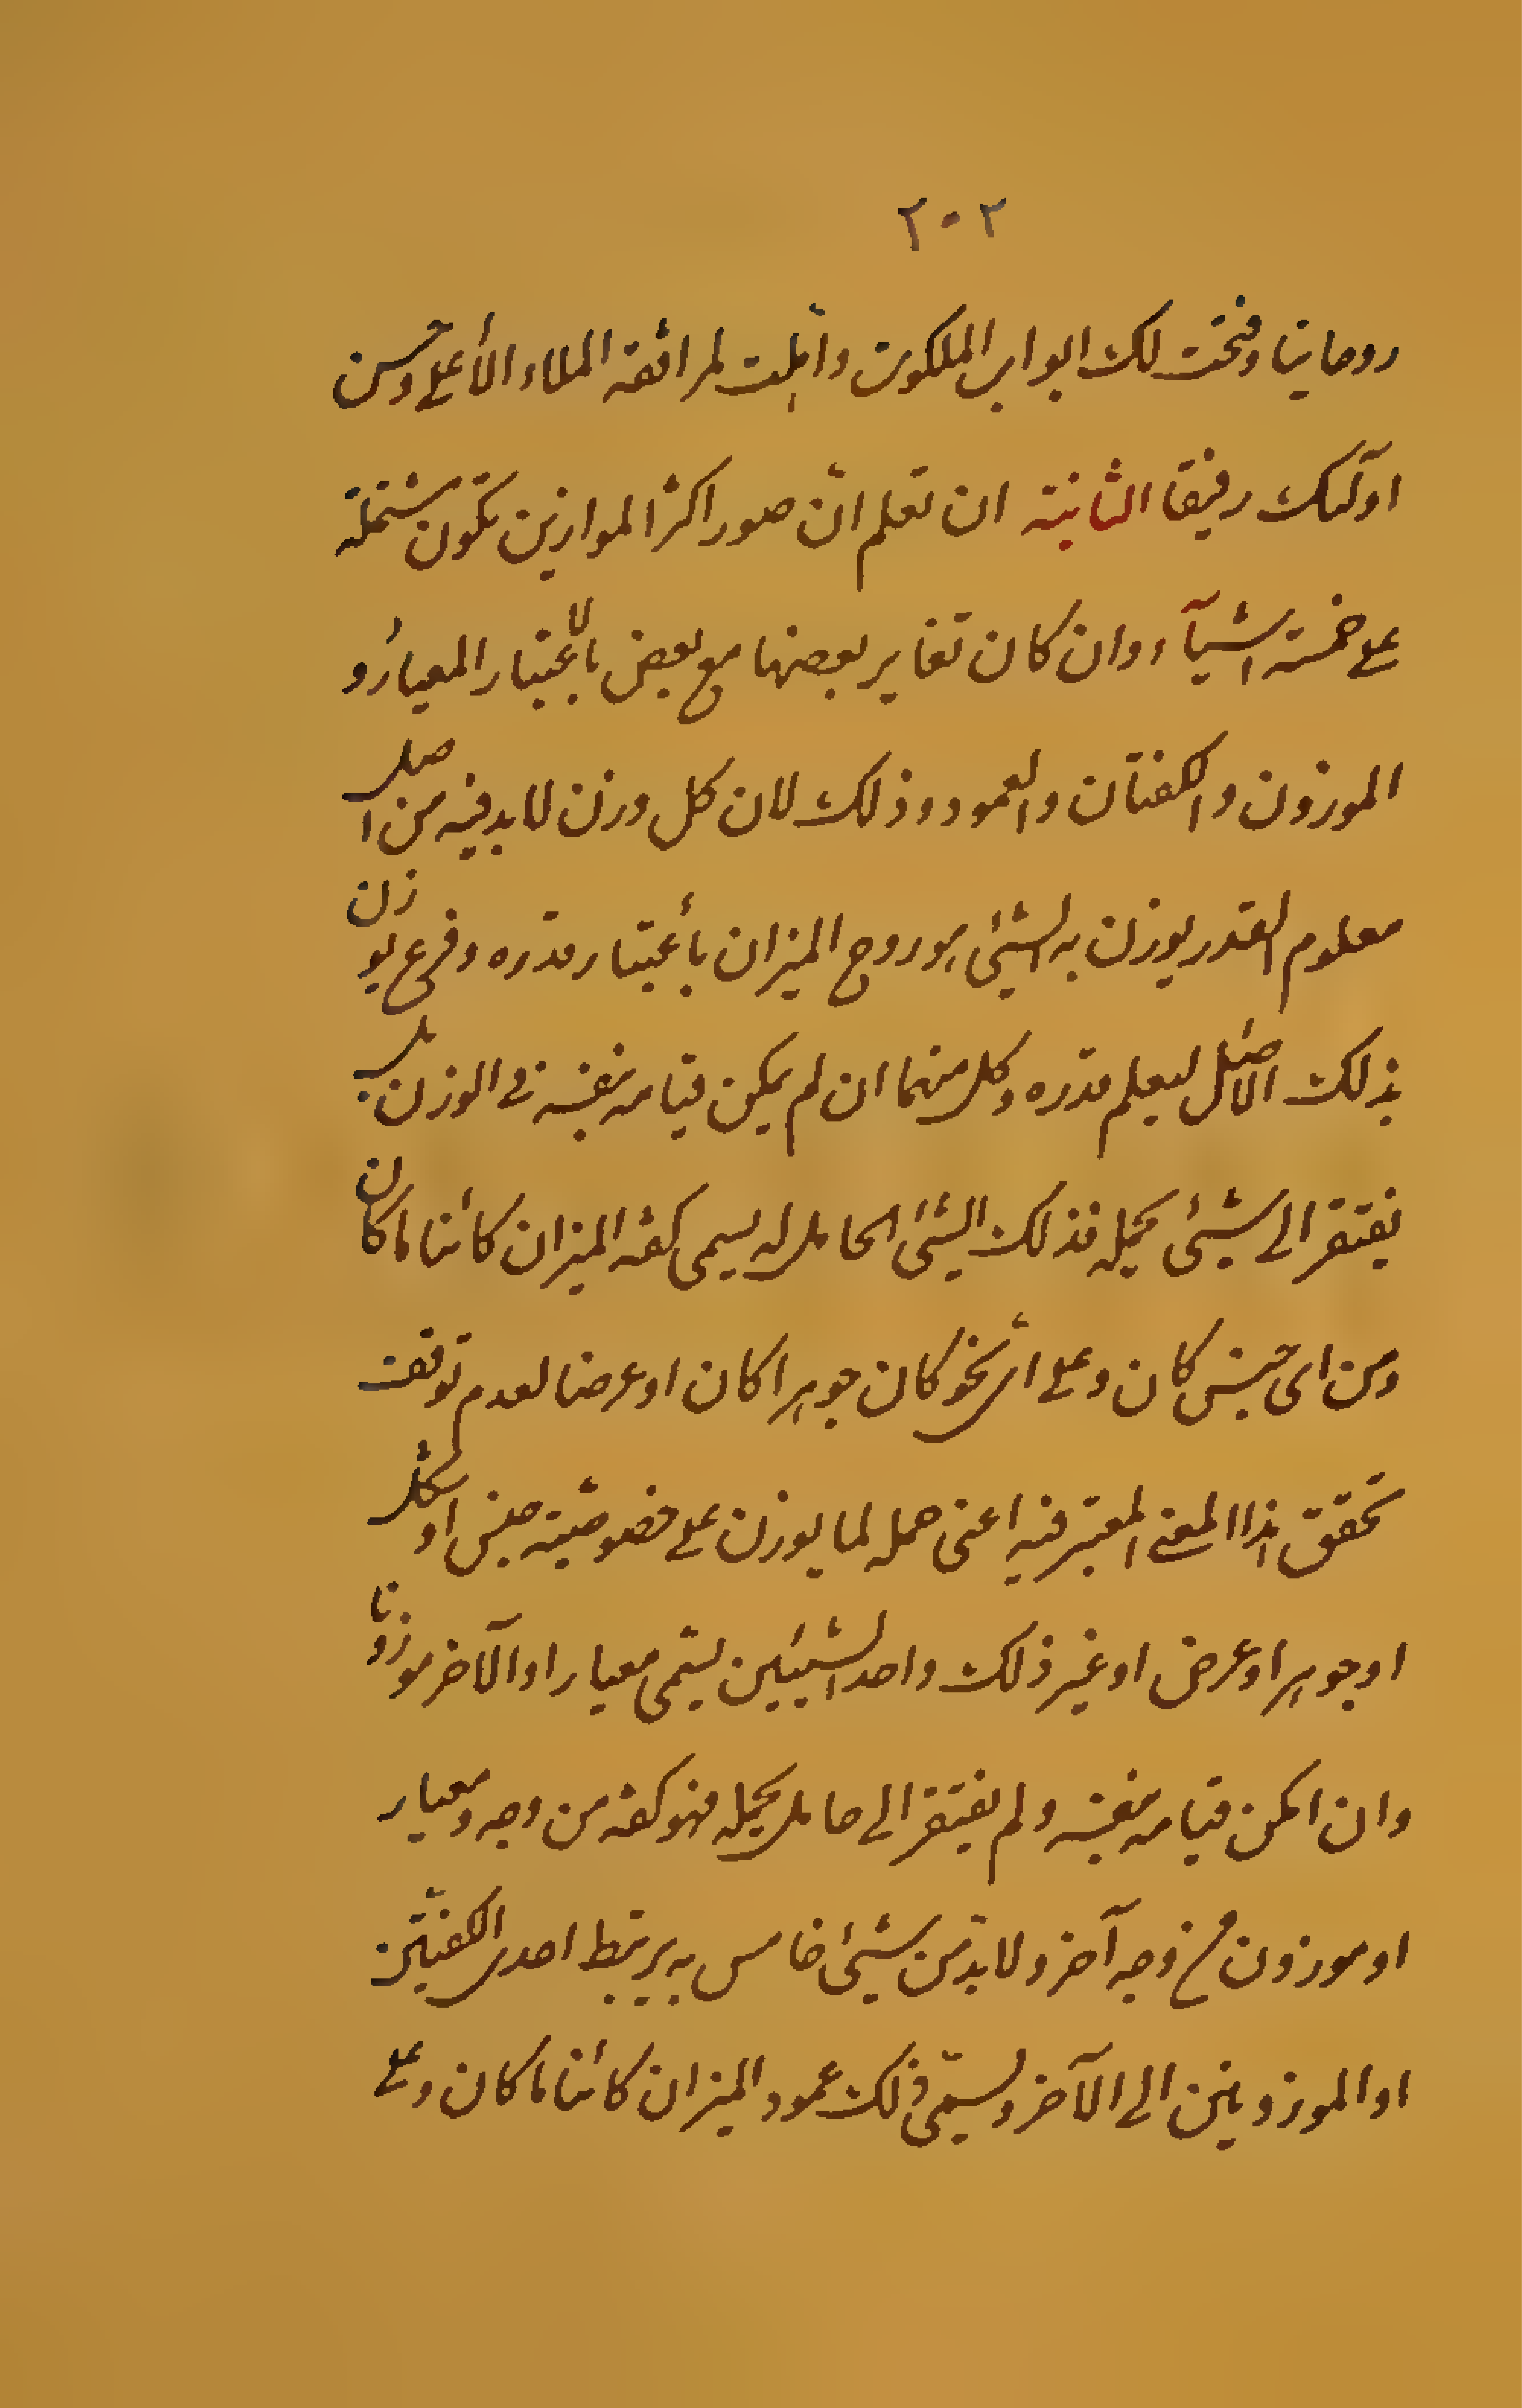 ٢٠٢
روحانيا وفتحت لك ابواب الملكوت واهلت لمرافقة الملاء الأعلى وحسن
اولئك رفيقا الثانية ان تعلم انّ صور اكثر الموازين تكون مشتملة
على خمسة اشيآء وان كان تغاير بعضها مع بعض بالأعتبار المعيار و
الموزون والكفتان والعمود وذلك لان كل وزن لابد فيه من اصل
معلوم القدر يوزن به الشيئ هو روح الميزان بأعتبار قدره وفرع يوزن
بذلك الاصل ليعلم قدره وكل منهما ان لم يمكن قيامه بنفسه فى الوزن بل
يفتقر الى شيئ يحمله فذلك الشيئ الحامل له يسمى كفة الميزان كائنا ما كان
ومن اى جنس كان وعلى اى نحو كان جوهرا كان او عرضا لعدم توقف
تحقق هذا المعنى المعتبر فيه اعنى حمله لما يوزن على خصوصية جنس او شكل
او جوهر او عرض او غير ذلك واحد الشيئين يسمى معيارا والآخر موزونا
وان امكن قيامه بنفسه ولم يفتقر الى حامل يحمله فهو كفة من وجه ومعيار
او موزون من وجه آخر ولابد من شيئ خامس به يرتبط احدى الكفتين
او الموزونين الى الآخر ويسمّى ذلك عمود الميزان كائنا ما كان وعلى